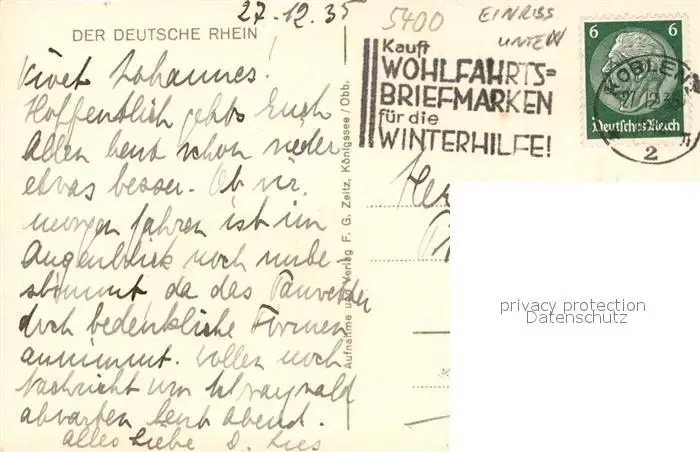 27.12.35
5400
EINRISS
UNTEN
DER DEUTSCHE RHEIN
Kauft
WOHLFAHRTS=
BRIEFMARKEN
für die
WINTERHILFE!
6 6
Deutsches Reich
KOBLENZ
27.12.35
2
Johannes!
Hoffentlich gehts Euch
Allen heut schon wieder
etwas besser. Ob wir
morgen fahren ist im
Augenblick noch unbe-
stimmt da das Tauwetter
doch bedenkliche Formen
annimmt. Wollen noch
Nachricht von
abwarten heut Abend.
Alles Liebe D.
Aufnahme und Verlag F. G. Zeitz, Königssee / Obb.
privacy protection
Datenschutz